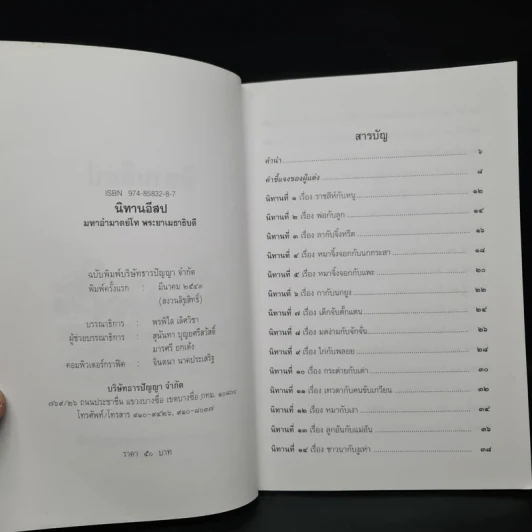 ISBN 974-85832-8-7
นิทานอีสป
มหาอำมาตย์โท พระยาเมธาธิบดี
ฉบับพิมพ์บริษัทธารปัญญา จำกัด
พิมพ์ครั้งแรก : มีนาคม ๒๕๔๑
(สงวนลิขสิทธิ์)
บรรณาธิการ : พรพิไล เลิศวิชา
ผู้ช่วยบรรณาธิการ : สุนันทา บุญยศรีสวัสดิ์
มารศรี
คอมพิวเตอร์กราฟิค : จินตนา นาคประเสริฐ
บริษัทธารปัญญา จำกัด
๗๖๙/๒๖ ถนนประชาชื่น แขวงบางซื่อ เขตบางซื่อ กทม. ๑๐๘๐๐
โทรศัพท์/โทรสาร ๙๑๐-๙๔๒๖, ๙๑๐-๘๐๓๗
ราคา ๕๐ บาท
สารบัญ
คำนำ ๖
คำชี้แจงของผู้แต่ง ๘
นิทานที่ ๑ เรื่อง ราชสีห์กับหนู ๑๒
นิทานที่ ๒ เรื่อง พ่อกับลูก ๑๔
นิทานที่ ๓ เรื่อง ลากับจิ้งหรีด ๑๖
นิทานที่ ๔ เรื่อง หมาจิ้งจอกกับนกกระสา ๑๘
นิทานที่ ๕ เรื่อง หมาจิ้งจอกกับแพะ ๒๐
นิทานที่ ๖ เรื่อง กากับนกยูง ๒๒
นิทานที่ ๗ เรื่อง เด็กจับตั๊กแตน ๒๔
นิทานที่ ๘ เรื่อง มดง่ามกับจักจั่น ๒๖
นิทานที่ ๙ เรื่อง ไก่กับพลอย ๒๘
นิทานที่ ๑๐ เรื่อง กระต่ายกับเต่า ๓๐
นิทานที่ ๑๑ เรื่อง เทวดากับคนขับเกวียน ๓๒
นิทานที่ ๑๒ เรื่อง หมากับเงา ๓๔
นิทานที่ ๑๓ เรื่อง ลูกอ้นกับแม่อ้น ๓๖
นิทานที่ ๑๔ เรื่อง ชาวนากับงูเห่า ๓๘